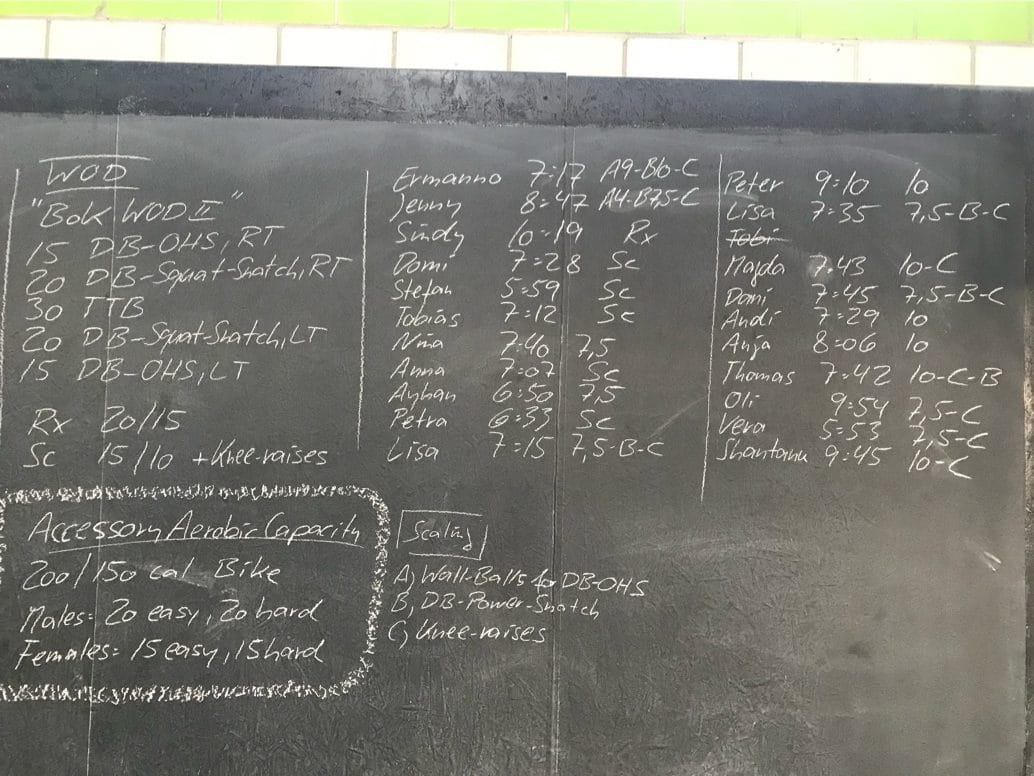 WOD
"Bok WOD II"
15 DB-OHS, RT
20 DB-Squat-Snatch, RT
30 TTB
20 DB-Squat-Snatch, LT
15 DB-OHS, LT
Rx 20/15
Sc 15/10 + Knee-raises
Accessory Aerobic Capacity
200/150 cal Bike
Males: 20 easy, 20 hard
Females: 15 easy, 15 hard
Ermanno 7:17 A9-B10-C
Jenny 8:47 A4-B7,5-C
Sindy 10:19 Rx
Domi 7:28 Sc
Stefan 5:59 Sc
Tobias 7:12 Sc
Nina 7:40 7,5
Anna 7:07 Sc
Ayhan 6:50 7,5
Petra 6:33 Sc
Lisa 7:15 7,5-B-C
Scaling
A) Wall-Balls for DB-OHS
B) DB-Power-Snatch
C) Knee-raises
Peter 9:10 10
Lisa 7:35 7,5-B-C
Tobi
Majda 7:43 10-C
Dani 7:45 7,5-B-C
Andi 7:29 10
Anja 8:06 10
Thomas 7:42 10-C-B
Oli 9:54 7,5-C
Vera 5:53 7,5-C
Shantanu 9:45 10-C